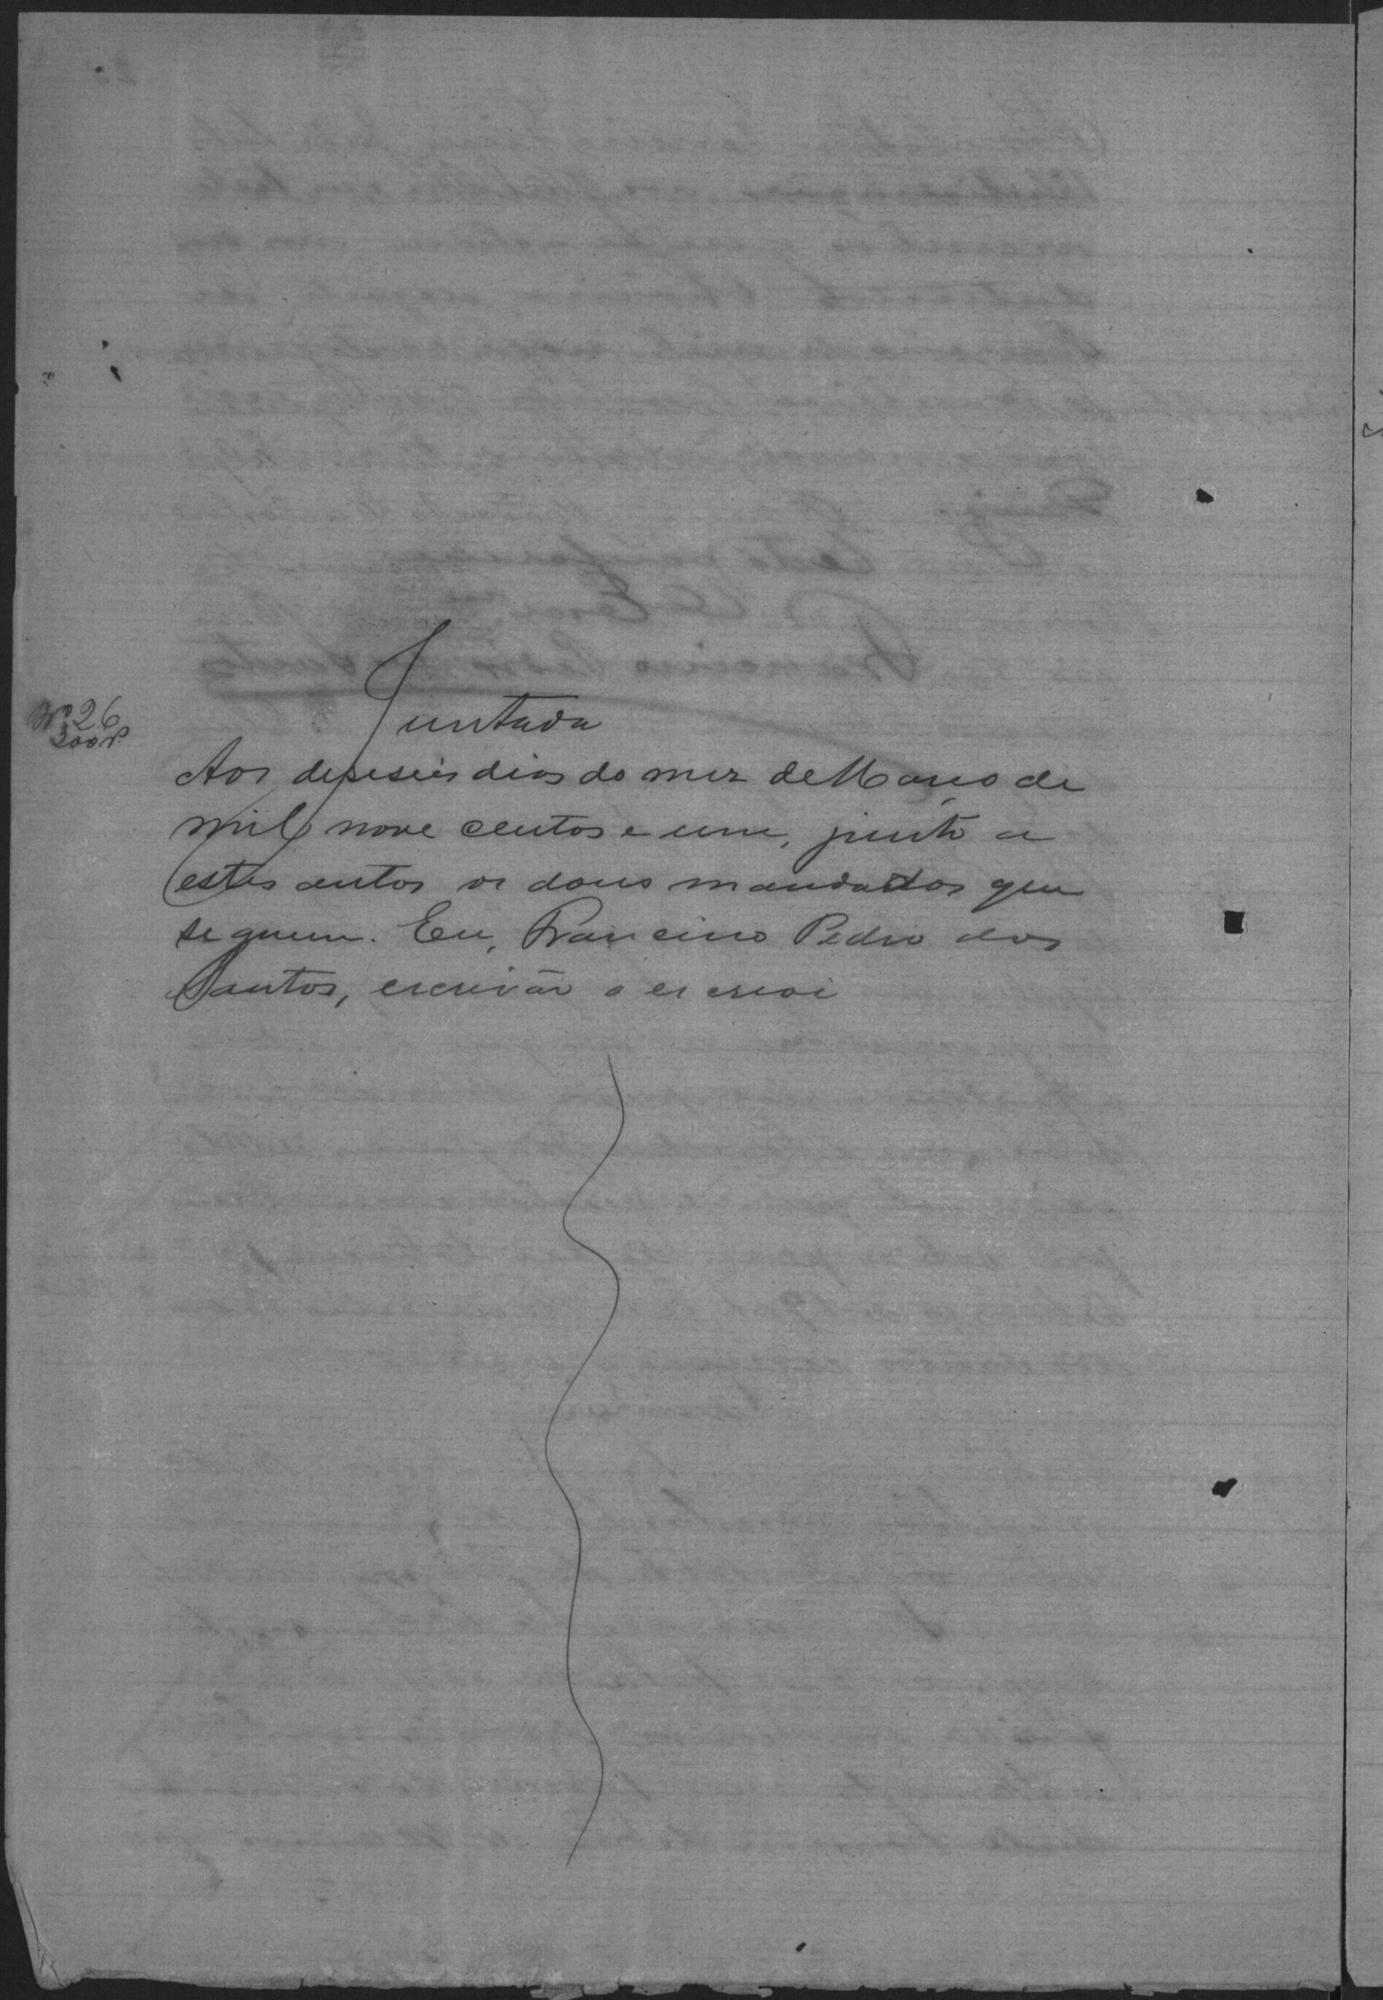 Juntada
Nº 26
300 rs.
Aos deseseis dias do mez de Março de
mil nove centos e um, junto a
estes autos os dous mandados que
seguem. Eu, Francino Pedro dos
Santos, escrivão o escrevi